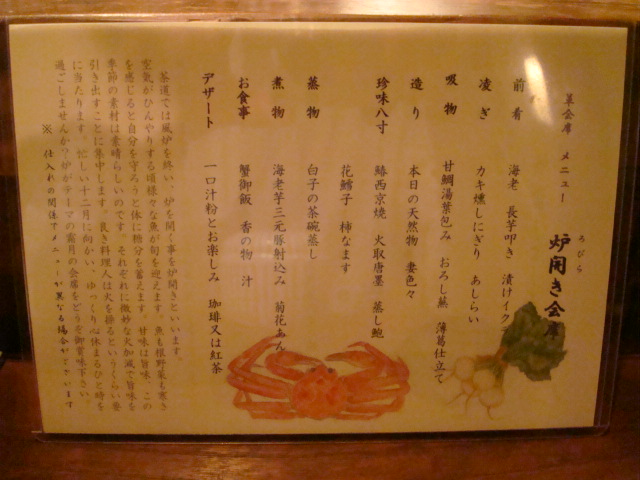 草会席 メニュー
ろびら
炉開き会席
前肴 海老 長芋叩き 漬けイクラ
凌ぎ カキ燻しにぎり あしらい
吸物 甘鯛湯葉包み おろし蕪 薄葛仕立て
造り 本日の天然物 妻色々
珍味八寸 鰆西京焼 火取唐墨 蒸し鮑
花鱈子 柿なます
蒸物 白子の茶碗蒸し
煮物 海老芋三元豚射込み 菊花あん
お食事 蟹御飯 香の物 汁
デザート 一口汁粉とお楽しみ 珈琲又は紅茶
茶道では風炉を終い、炉を開く事を炉開きといいます。
空気がひんやりする頃様々な魚が旬を迎えます。魚も根野菜も寒さ
を感じると自分を守ろうと体に糖分を蓄えます。甘味は旨味、この
季節の素材は素晴らしいのです。それぞれに微妙な火加減で旨味を
引き出すことに集中します。良き料理人は火を操るというくらい要
に当たります。忙しい十二月に向かい、ゆっくり心休まるひと時を
過ごしませんか?炉がテーマの霜月の会席をどうぞ御賞味下さい。
※ 仕入れの関係でメニューが異なる場合がございます